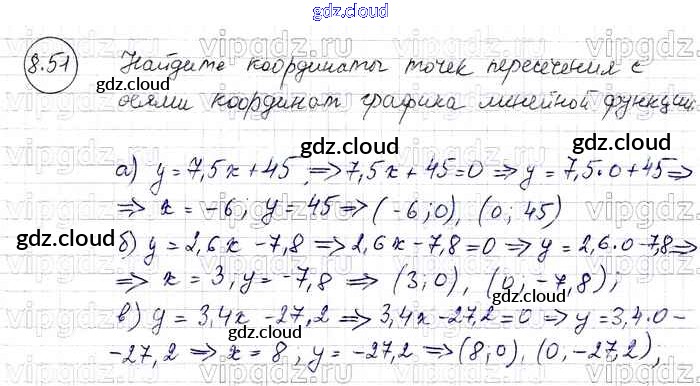 gdz.cloud
8.51 Найдите координаты точек пересечения с
gdz.cloud
осями координат графика линейной функции
gdz.cloud
а) y = 7,5x + 45 ⇒ 7,5x + 45 = 0 ⇒ y = 7,5·0 + 45 ⇒
gdz.cloud
⇒ x = -6; y = 45 ⇒ (-6; 0), (0; 45)
gdz.cloud
б) y = 2,6x - 7,8 ⇒ 2,6x - 7,8 = 0 ⇒ y = 2,6·0 - 7,8 ⇒
gdz.cloud
⇒ x = 3, y = -7,8 ⇒ (3; 0), (0; -7,8);
gdz.cloud
в) y = 3,4x - 27,2 ⇒ 3,4x - 27,2 = 0 ⇒ y = 3,4·0 -
gdz.cloud
- 27,2 ⇒ x = 8, y = -27,2 ⇒ (8; 0), (0; -27,2),
gdz.cloud